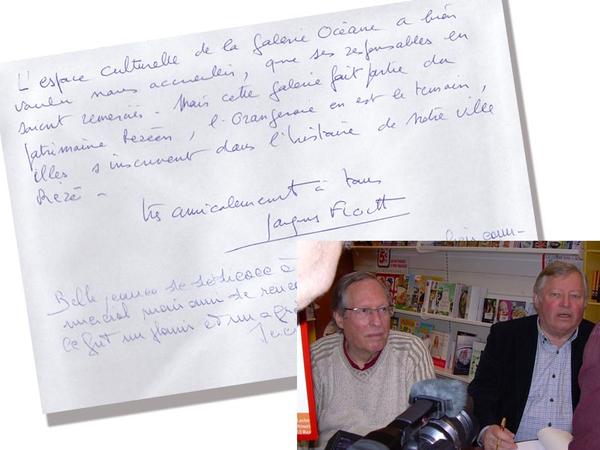 L'espace culturelle de la galerie Océane a bien
voulu nous accueillir, que ses responsables en
soient remerciés - Mais cette galerie fait partie du
patrimoine Rezéen, l'Orangeraie en est le témoin,
elles s'inscrivent dans l'histoire de notre ville
Rézé -
très amicalement à tous
Jacques
bien com-
Belle journée de dédicace à
mercial mais aussi de renco
Ce fut un plaisir et un